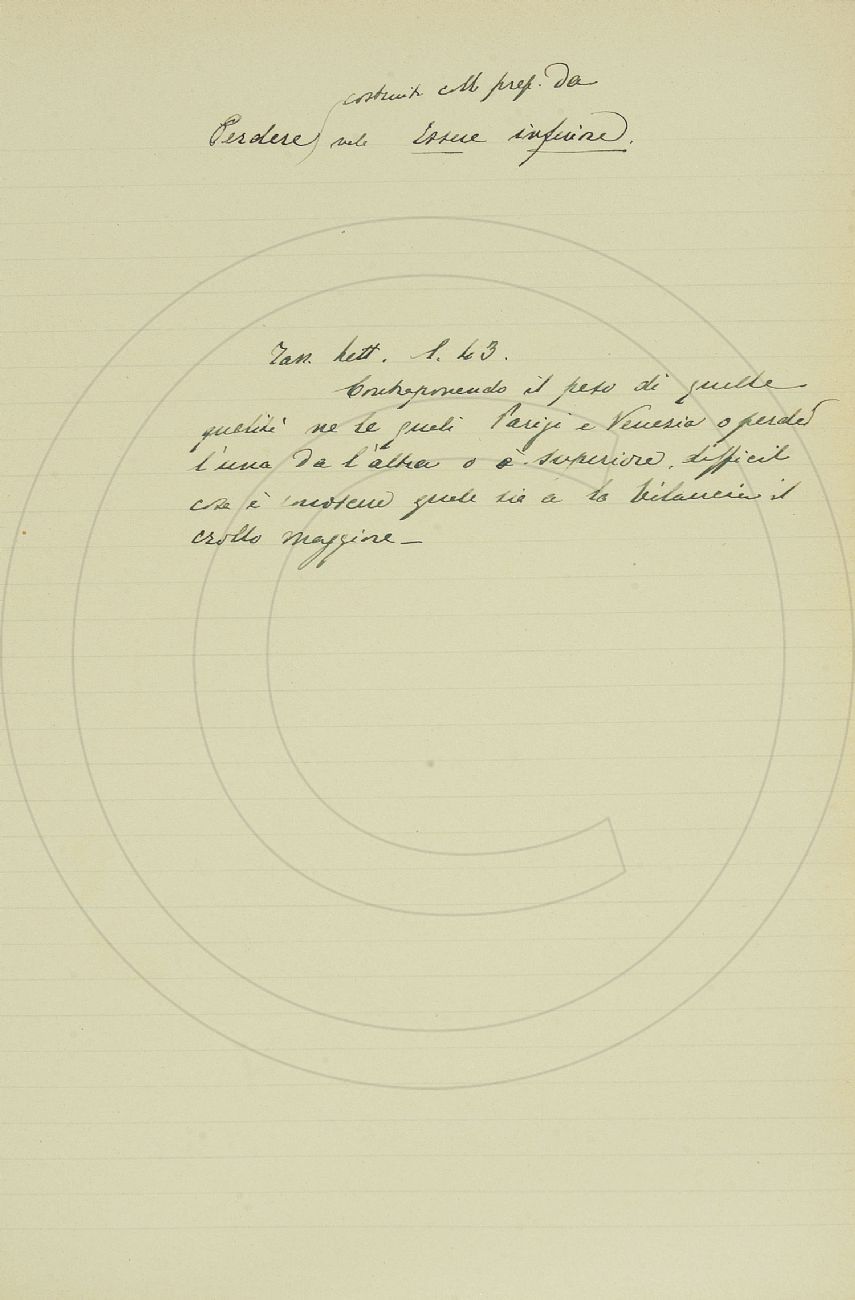 costruito coll prep. Da
Perdere) vale Essere inferiore).
Tass. Lett. 1. 43.
Contraponendo il peso di quelle
qualità ne le quali Parigi e Venezia o perde
l'una da l'altra o è superiore, difficil
cosa è notare quale sia a la bilancia il
crollo maggiore —